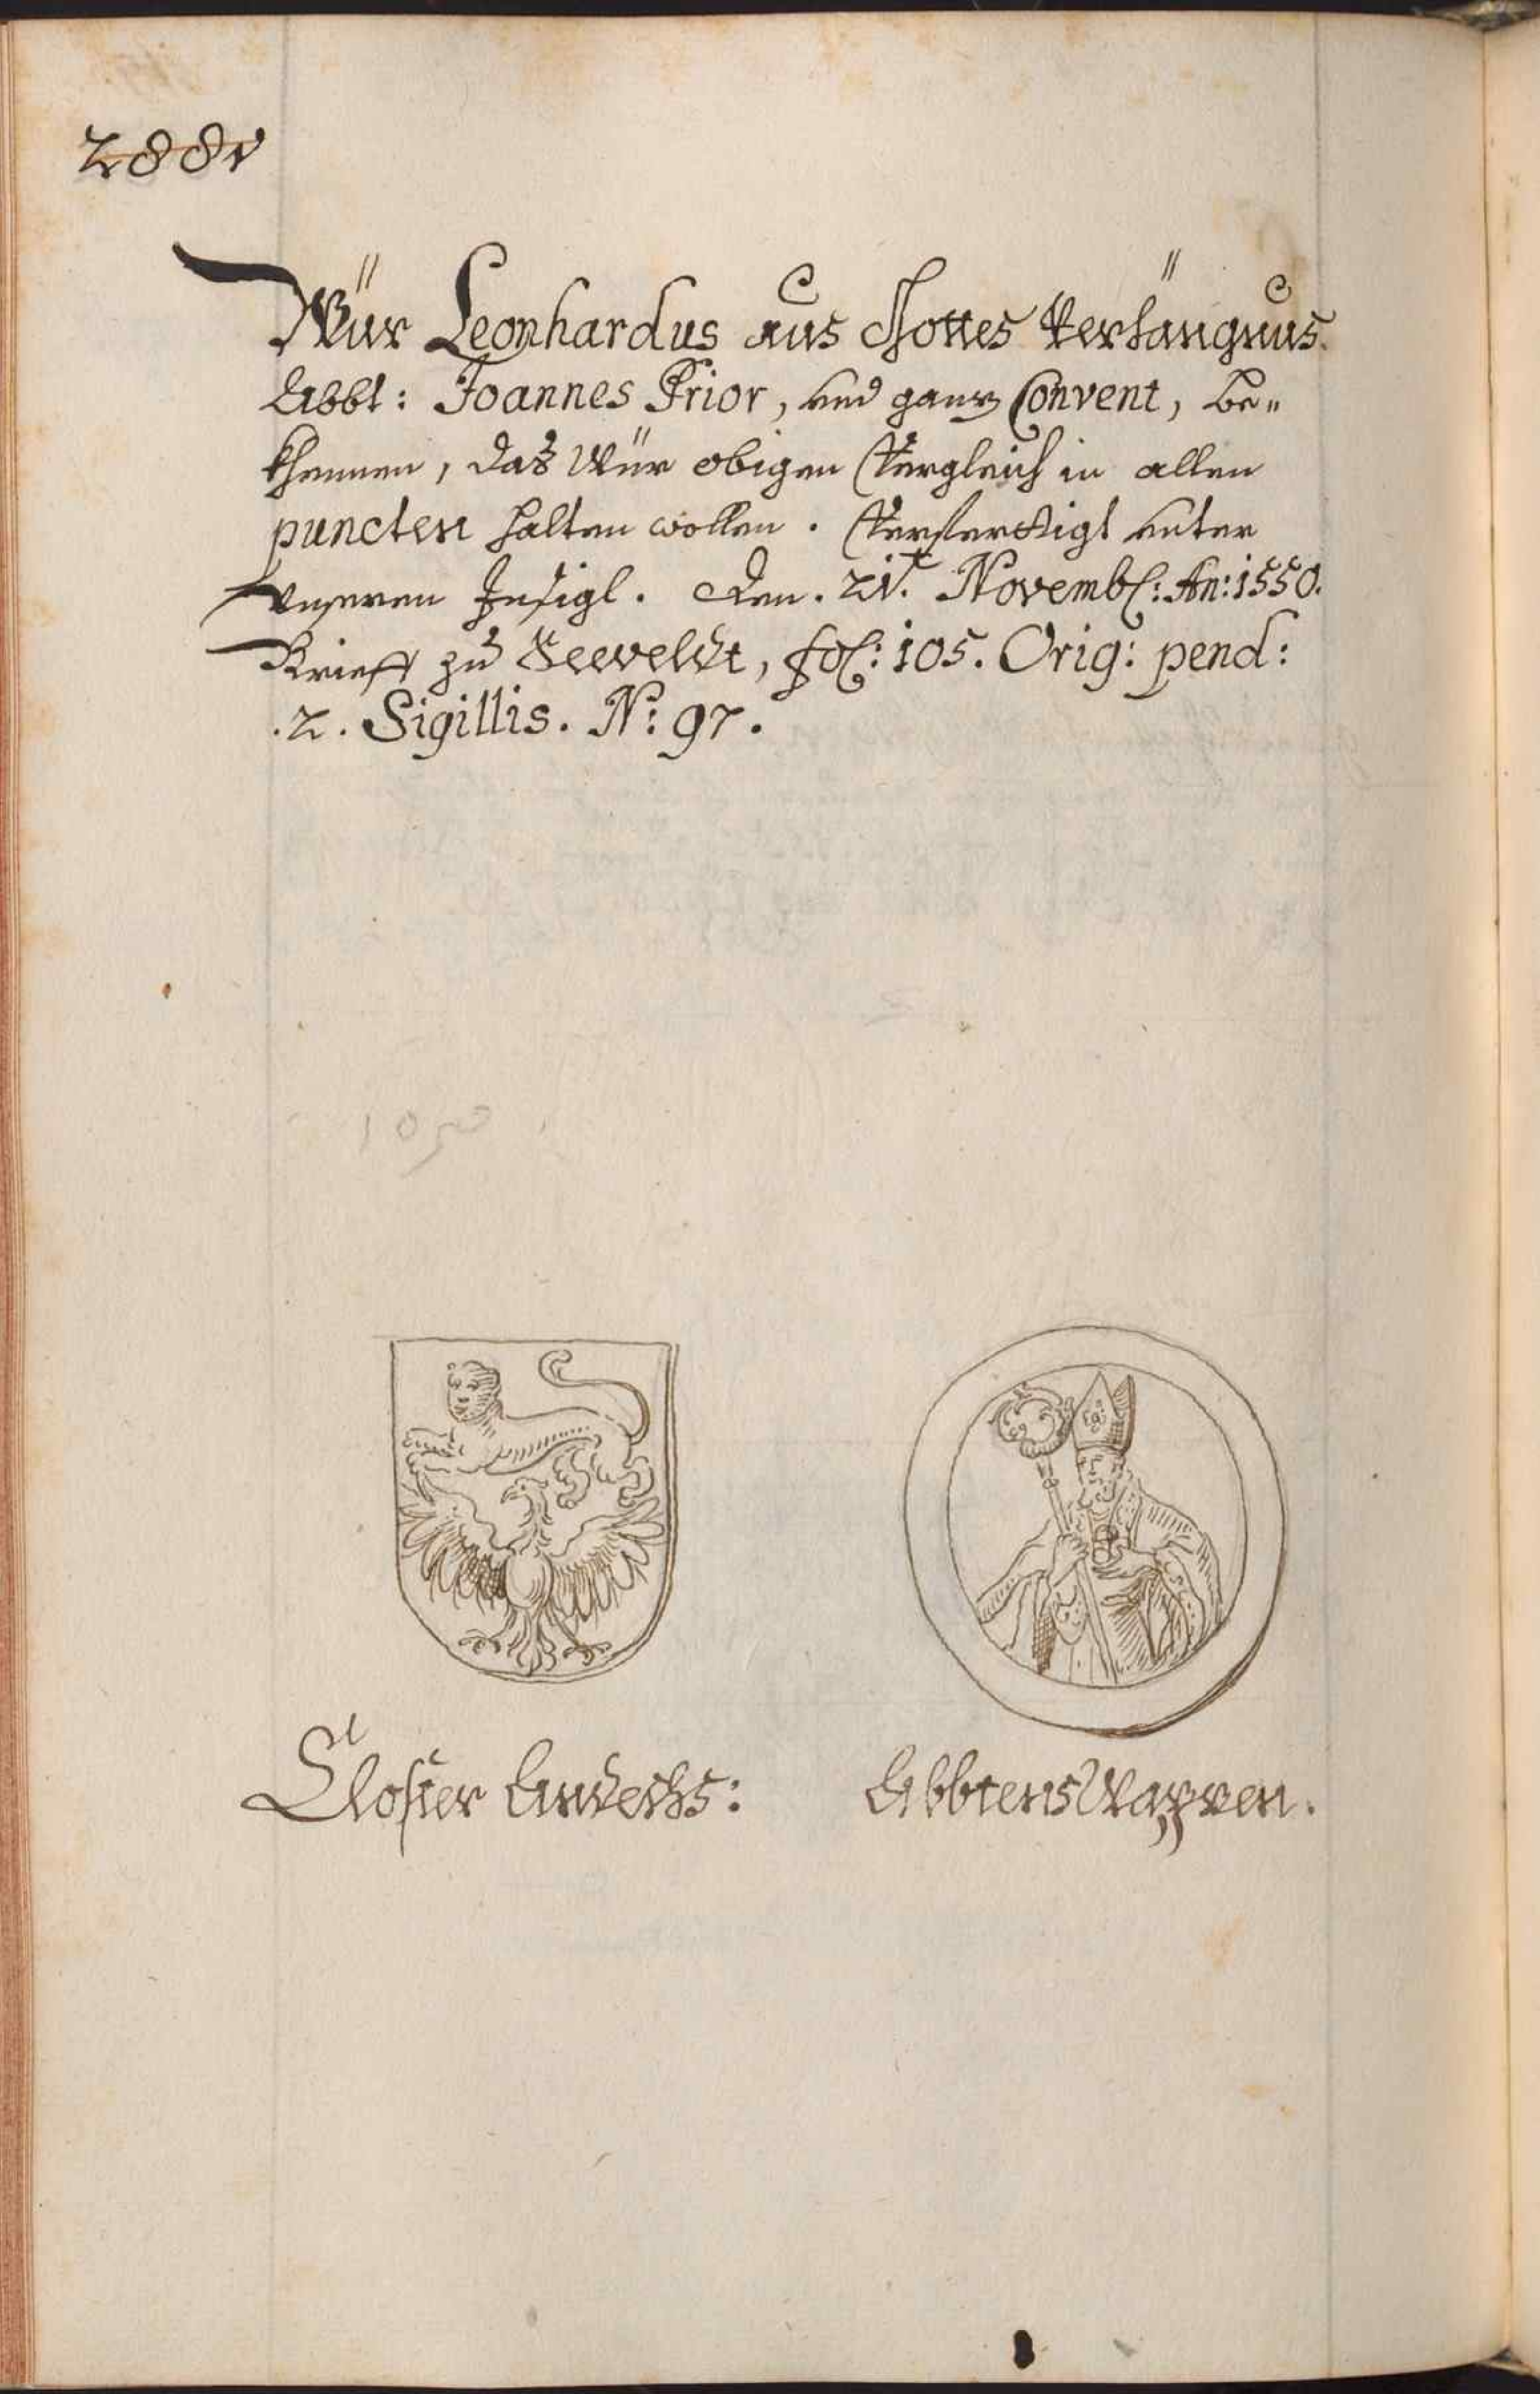 288v
Wür Leonhardus aus Gottes Verhängnus
Abbt: Joannes Prior, und ganz Convent, be„
khennen, das Wür obigen Vergleich in allen
puncten halten wollen. Verfertigt unter
unseren Insigl. Den. 21. Novemb: An: 1550.
Brieff zu Seeveldt, fol: 105. Orig: pend:
.2. Sigillis. N: 97.
Closter Andechs:
Abbtens Wappen.